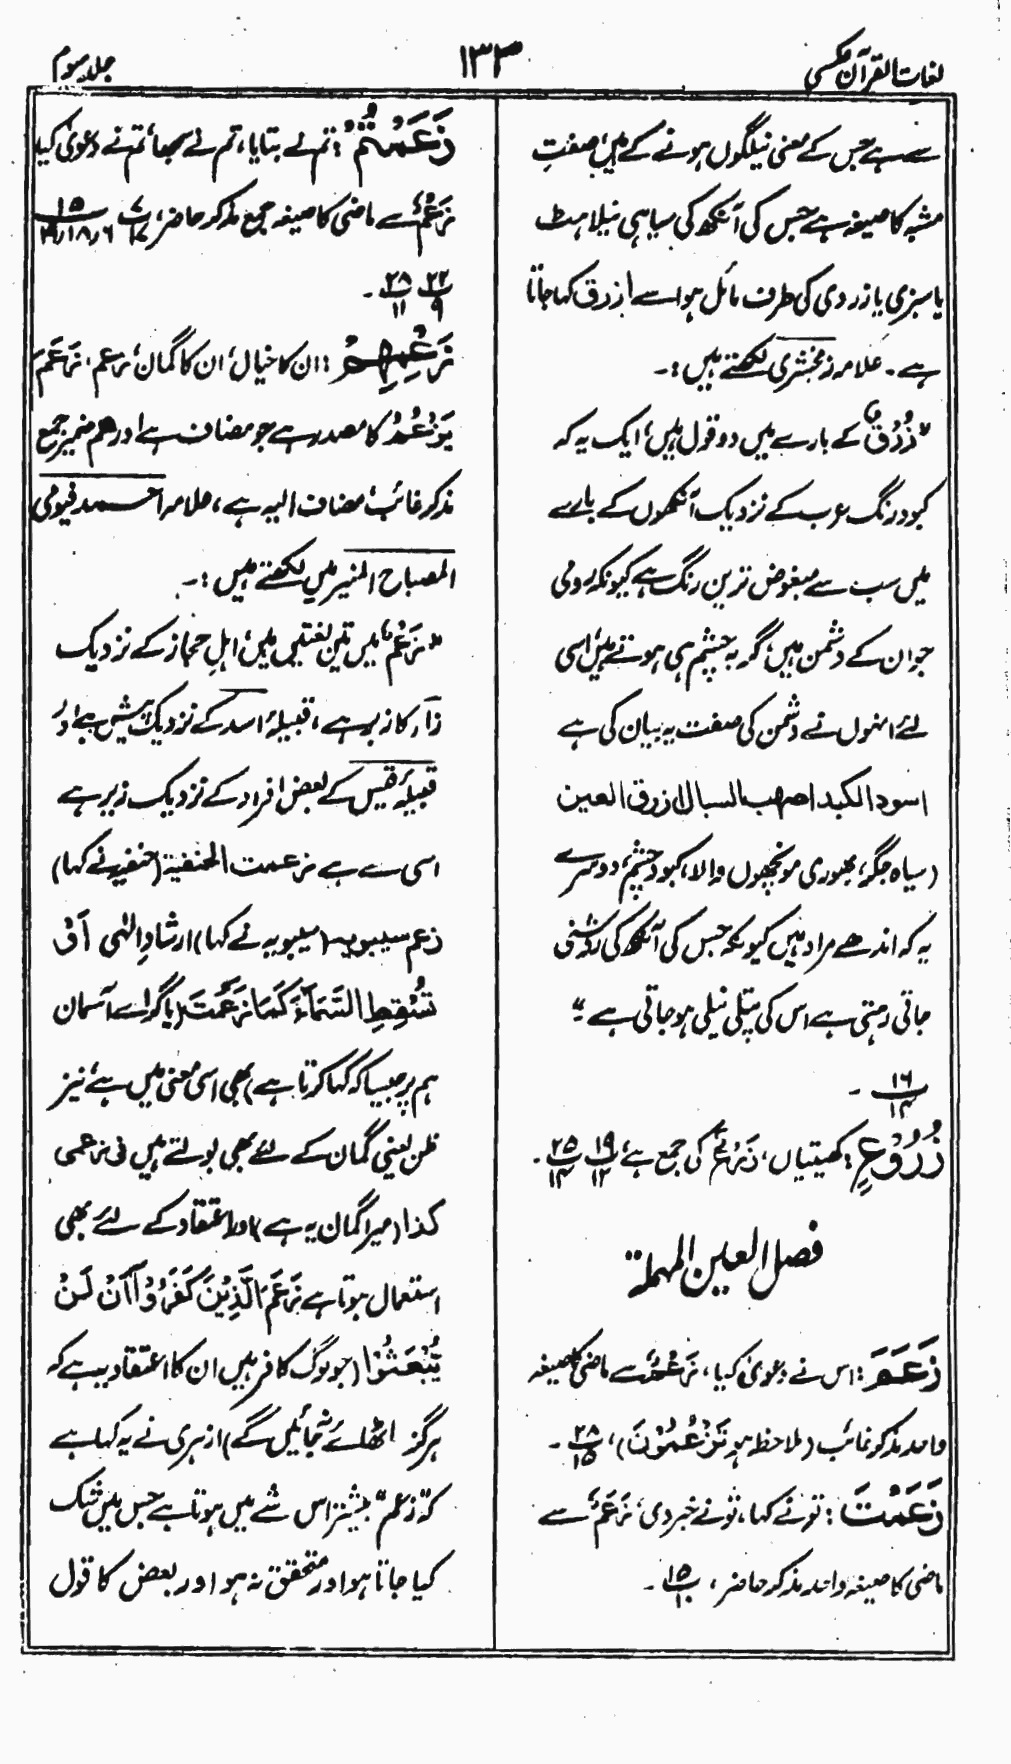 لغات القرآن عکسی
۱۳۳
جلد سوم
سے ہے جس کے معنی نیلگوں ہونے کے ہیں، صفتِ
مشبہ کا صیغہ ہے جس کی آنکھ کی سیاہی نیلاہٹ
یا سبزی یا زردی کی طرف مائل ہو اسے ازرق کہا جاتا
ہے۔ علامہ زمخشری لکھتے ہیں:۔
"زُرْقٌ کے بارے میں دو قول ہیں، ایک یہ کہ
کبود رنگ عرب کے نزدیک آنکھوں کے بارے
میں سب سے مبغوض ترین رنگ ہے کیونکہ رومی
جو ان کے دشمن ہیں، گربہ چشم ہی ہوتے ہیں، اسی
لئے انہوں نے دشمن کی صفت یہ بیان کی ہے
اسود الکبد اصہب السبال ازرق العین
(سیاہ جگر، بھوری مونچھوں والا، کبود چشم، دوسرے
یہ کہ اندھے مراد ہیں کیونکہ جس کی آنکھ کی روشنی
جاتی رہتی ہے اس کی پتلی نیلی ہو جاتی ہے"
۱۶/۱۴ ۔
زُرُوْعٍ: کھیتیاں، زَرْعٌ کی جمع ہے، ۱۹/۱۲ ۲۵/۱۴ ۔
فصل العین المہملۃ
زَعَمَ: اس نے دعویٰ کیا، زَعْمٌ سے ماضی کا صیغہ
واحد مذکر غائب (ملاحظہ ہو تَزْعُمُوْنَ)، ۲۸/۱۵ ۔
زَعَمْتَ: تو نے کہا، تو نے خبر دی، زَعْمٌ سے
ماضی کا صیغہ واحد مذکر حاضر، ۱۵/۱۰ ۔
زَعَمْتُمْ: تم نے بتایا، تم نے سمجھا، تم نے دعویٰ کیا
زَعْمٌ سے ماضی کا صیغہ جمع مذکر حاضر، ۷/۱۷ ۱۵/۶، ۱۸، ۱۹
۲۲/۹ ۲۸/۱۱ ۔
زَعْمِهِمْ: ان کا خیال، ان کا گمان، زعم، زَعَمَ
یَزْعُمُ کا مصدر ہے جو مضاف ہے اور هم ضمیر جمع
مذکر غائب، مضاف الیہ ہے، علامہ احمد فیومی
المصباح المنیر میں لکھتے ہیں:۔
"زَعْمٌ" میں تین لغتیں ہیں، اہلِ حجاز کے نزدیک
زاء کا زبر ہے، قبیلۂ اسد کے نزدیک پیش ہے اور
قبیلۂ قیس کے بعض افراد کے نزدیک زیر ہے
اسی سے ہے زعمت الحنفیۃ (حنفیہ نے کہا)
زعم سیبویہ (سیبویہ نے کہا) ارشادِ الٰہی اَوْ
تُسْقِطَ السَّمَآءَ كَمَا زَعَمْتَ (یا گرا دے آسمان
ہم پر جیسا کہ کہا کرتا ہے) بھی اسی معنی میں ہے، نیز
ظن یعنی گمان کے لئے بھی بولتے ہیں فی زعمی
کذا (میرا گمان یہ ہے) اور اعتقاد کے لئے بھی
استعمال ہوتا ہے زَعَمَ الَّذِيْنَ كَفَرُوْٓا اَنْ لَّنْ
يُّبْعَثُوْا (جو لوگ کافر ہیں ان کا اعتقاد یہ ہے کہ
ہرگز اٹھائے نہ جائیں گے) ازہری نے یہ کہا ہے
کہ "زعم" بیشتر اس شے میں ہوتا ہے جس میں شک
کیا جاتا ہو اور متحقق نہ ہو اور بعض کا قول